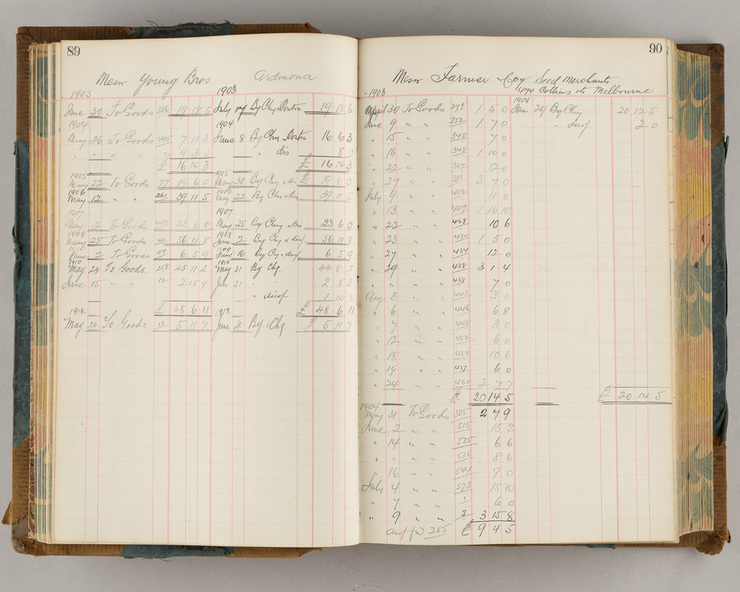 89
Messrs Young Bros Ardmona
1903 1903
June 30 To Goods 19 18 6 July By Chq 19 18 6
1904 1904
May 26 To Goods 7 11 3 June 8 By Chq 16 6 3
" " " 9 3 0 " dis 8 0
£ 16 14 3 £ 16 14 3
1905 1905
23 To Goods 77 19 6 0 May 30 By Chq & dis 19 6 0
1906
May 12 " " 261 39 11 5 May 22 By Chq 39 11 5
1907 1907
May 2 To Goods 23 6 0 May 25 By Chq 23 6 0
1908 1908
May 25 To Goods 56 11 8 June 2 By Chq & disct 56 11 8
1909 1909
June 2 To Goods 6 5 9 June 16 By Chq & disct 6 5 9
1910 1910
May 24 To Goods 45 11 2 May 31 By Chq
June 15 " " 2 15 9 Jun 21 2 8 3
" disct 1 10 3
£ 48 6 11 £ 48 6 11
May 20 To Goods 12 5 11 7 June 2 By Chq £ 5 11 7
90
Messrs Farmer & Coy Seed Merchants
Collins st Melbourne
1903 1904
April 30 To Goods 1 5 0 Jan 29 By Chq 20 12 5
June 9 " " 1 7 0 " disct 2 0
" 15 " " 348 7 0
" 18 " " 348 1 10 0
" 22 " " 12 0
" 24 " " 3 7 0
July 9 " " 11 0
" 13 " " 409 1 16 10
" 22 " " 428 10 6
" 23 " " 430 1 5 0
" 27 " " 434 12 0
" 29 " " 438 3 1 4
" " " 438 7 0
Aug 3 " " 3 0
" 6 " " 446 6 8
" 7 " " 448 3 0
" 12 " " 6 0
" 18 " " 10 6
" 19 " " 6 0
" 24 " " 460 2 7 7
£ 20 14 5 £ 20 14 5
1904
May 31 To Goods 505 2 7 9
June 2 " " 15 2
" 14 " " 525 6 6
" " " 526 8 6
" 16 " " 9 0
July 4 " " 573 15 10
" 7 " " 1 6 0
" 9 " " 2 3 15 8
285 £ 9 4 5